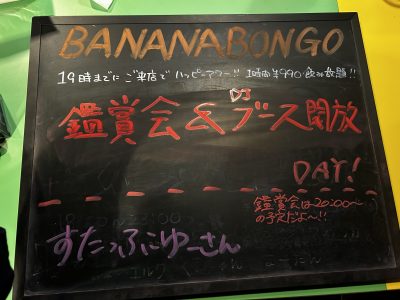 BANANABONGO
19時までにご来店でハッピーアワー!! 1時間¥990飲み放題!!
鑑賞会&DJブース開放
DAY!
鑑賞会は20:00〜
の予定だよ〜!!
すたっふにゅーさん